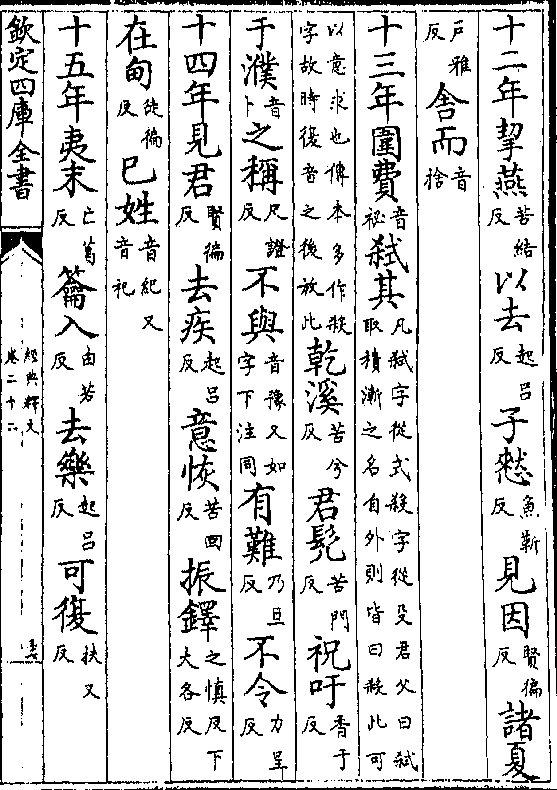 十二年挈燕苦結反以去起呂反子憖魚靳反見因賢徧反諸夏
戶雅反舍而音捨
十三年圍費音祕弑其凡弑字從式殺字從殳君父曰弑取積漸之名自外則皆曰殺此可
以意求也傳本多作殺字故時復音之後放此乾溪苦兮反君髡苦門反祝吁香于反
于濮音卜之稱尺證反不與音豫又如字下注同有難乃旦反不令力呈反
十四年見君賢徧反去疾起呂反意恢苦回反振鐸之慎反下大各反
在甸徒徧反巳姓音紀又音祀
十五年夷末亡葛反籥入由若反去樂起呂反可復扶又反
欽定四庫全書
經典釋文
卷二十二